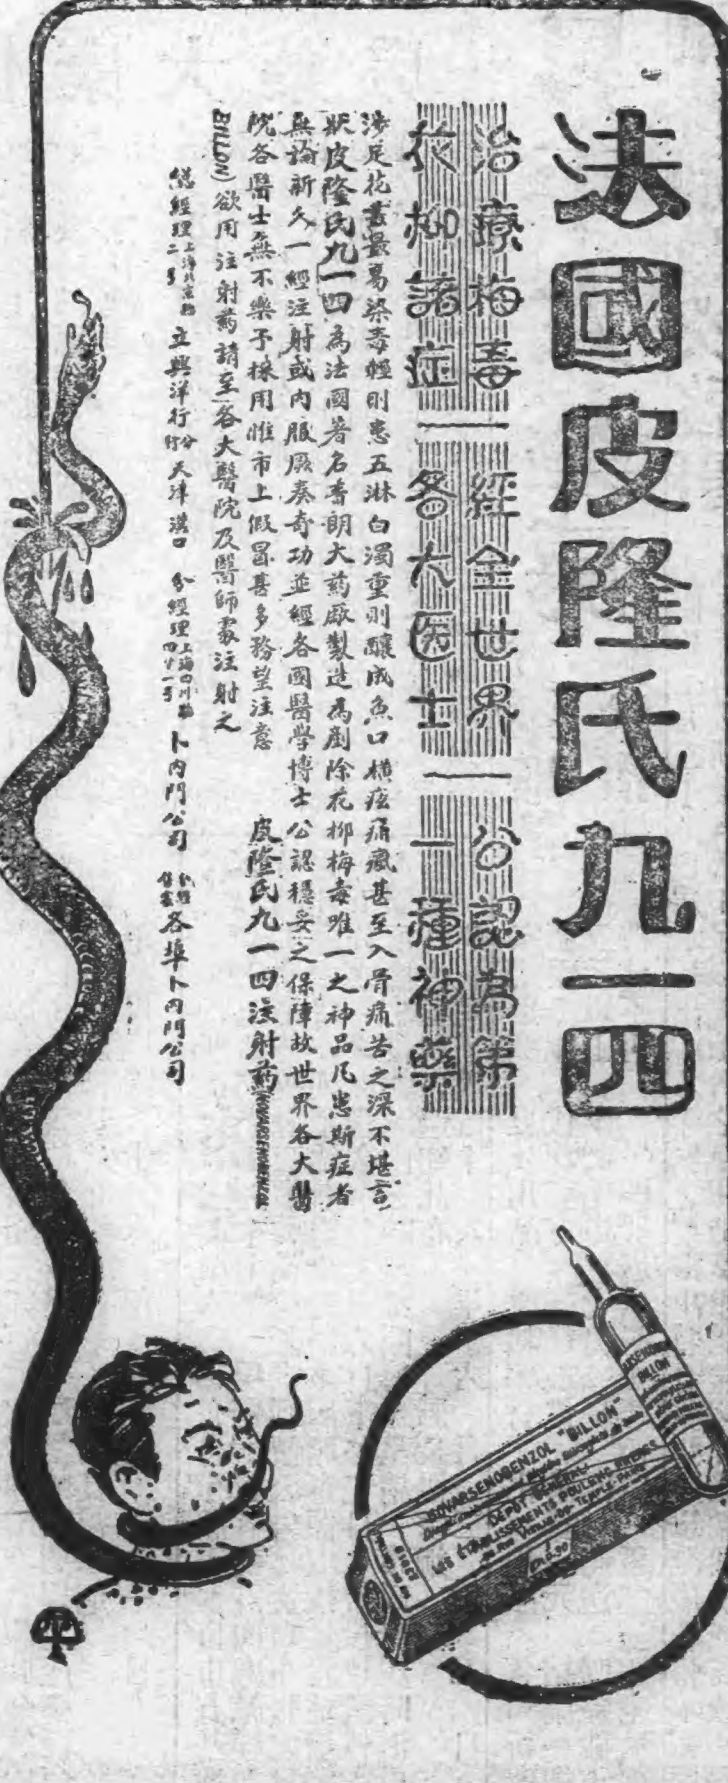 法國皮隆氏九一四
治療梅毒 經全世界 公認為第
花柳諸症 各大医士 一種神藥
涉足花叢最易染毒輕則患五淋白濁重則釀成魚口橫痃痲瘋甚至入骨痛苦之深不堪言
狀皮隆氏九一四為法國著名
大葯廠製造為剷除花柳梅毒唯一之神品凡患斯症者
無論新久一經注射或內服厥奏奇功並經各國醫學博士公認穩妥之保障故世界各大醫
院各醫士無不樂予採用惟市上假冒甚多務望注意 皮隆氏九一四注射葯(NOVARSENOBENZOL
BILLON)欲用注射葯請至各大醫院及醫師處注射之
總經理上海北京路二號 立興洋行 分行天津漢口 分經理上海四川路四十一號 卜內門公司 各埠卜內門公司
BILLON
NOVARSENOBENZOL "BILLON"
DÉPÔT GÉNÉRAL:
LES ÉTABLISSEMENTS POULENC FRÈRES